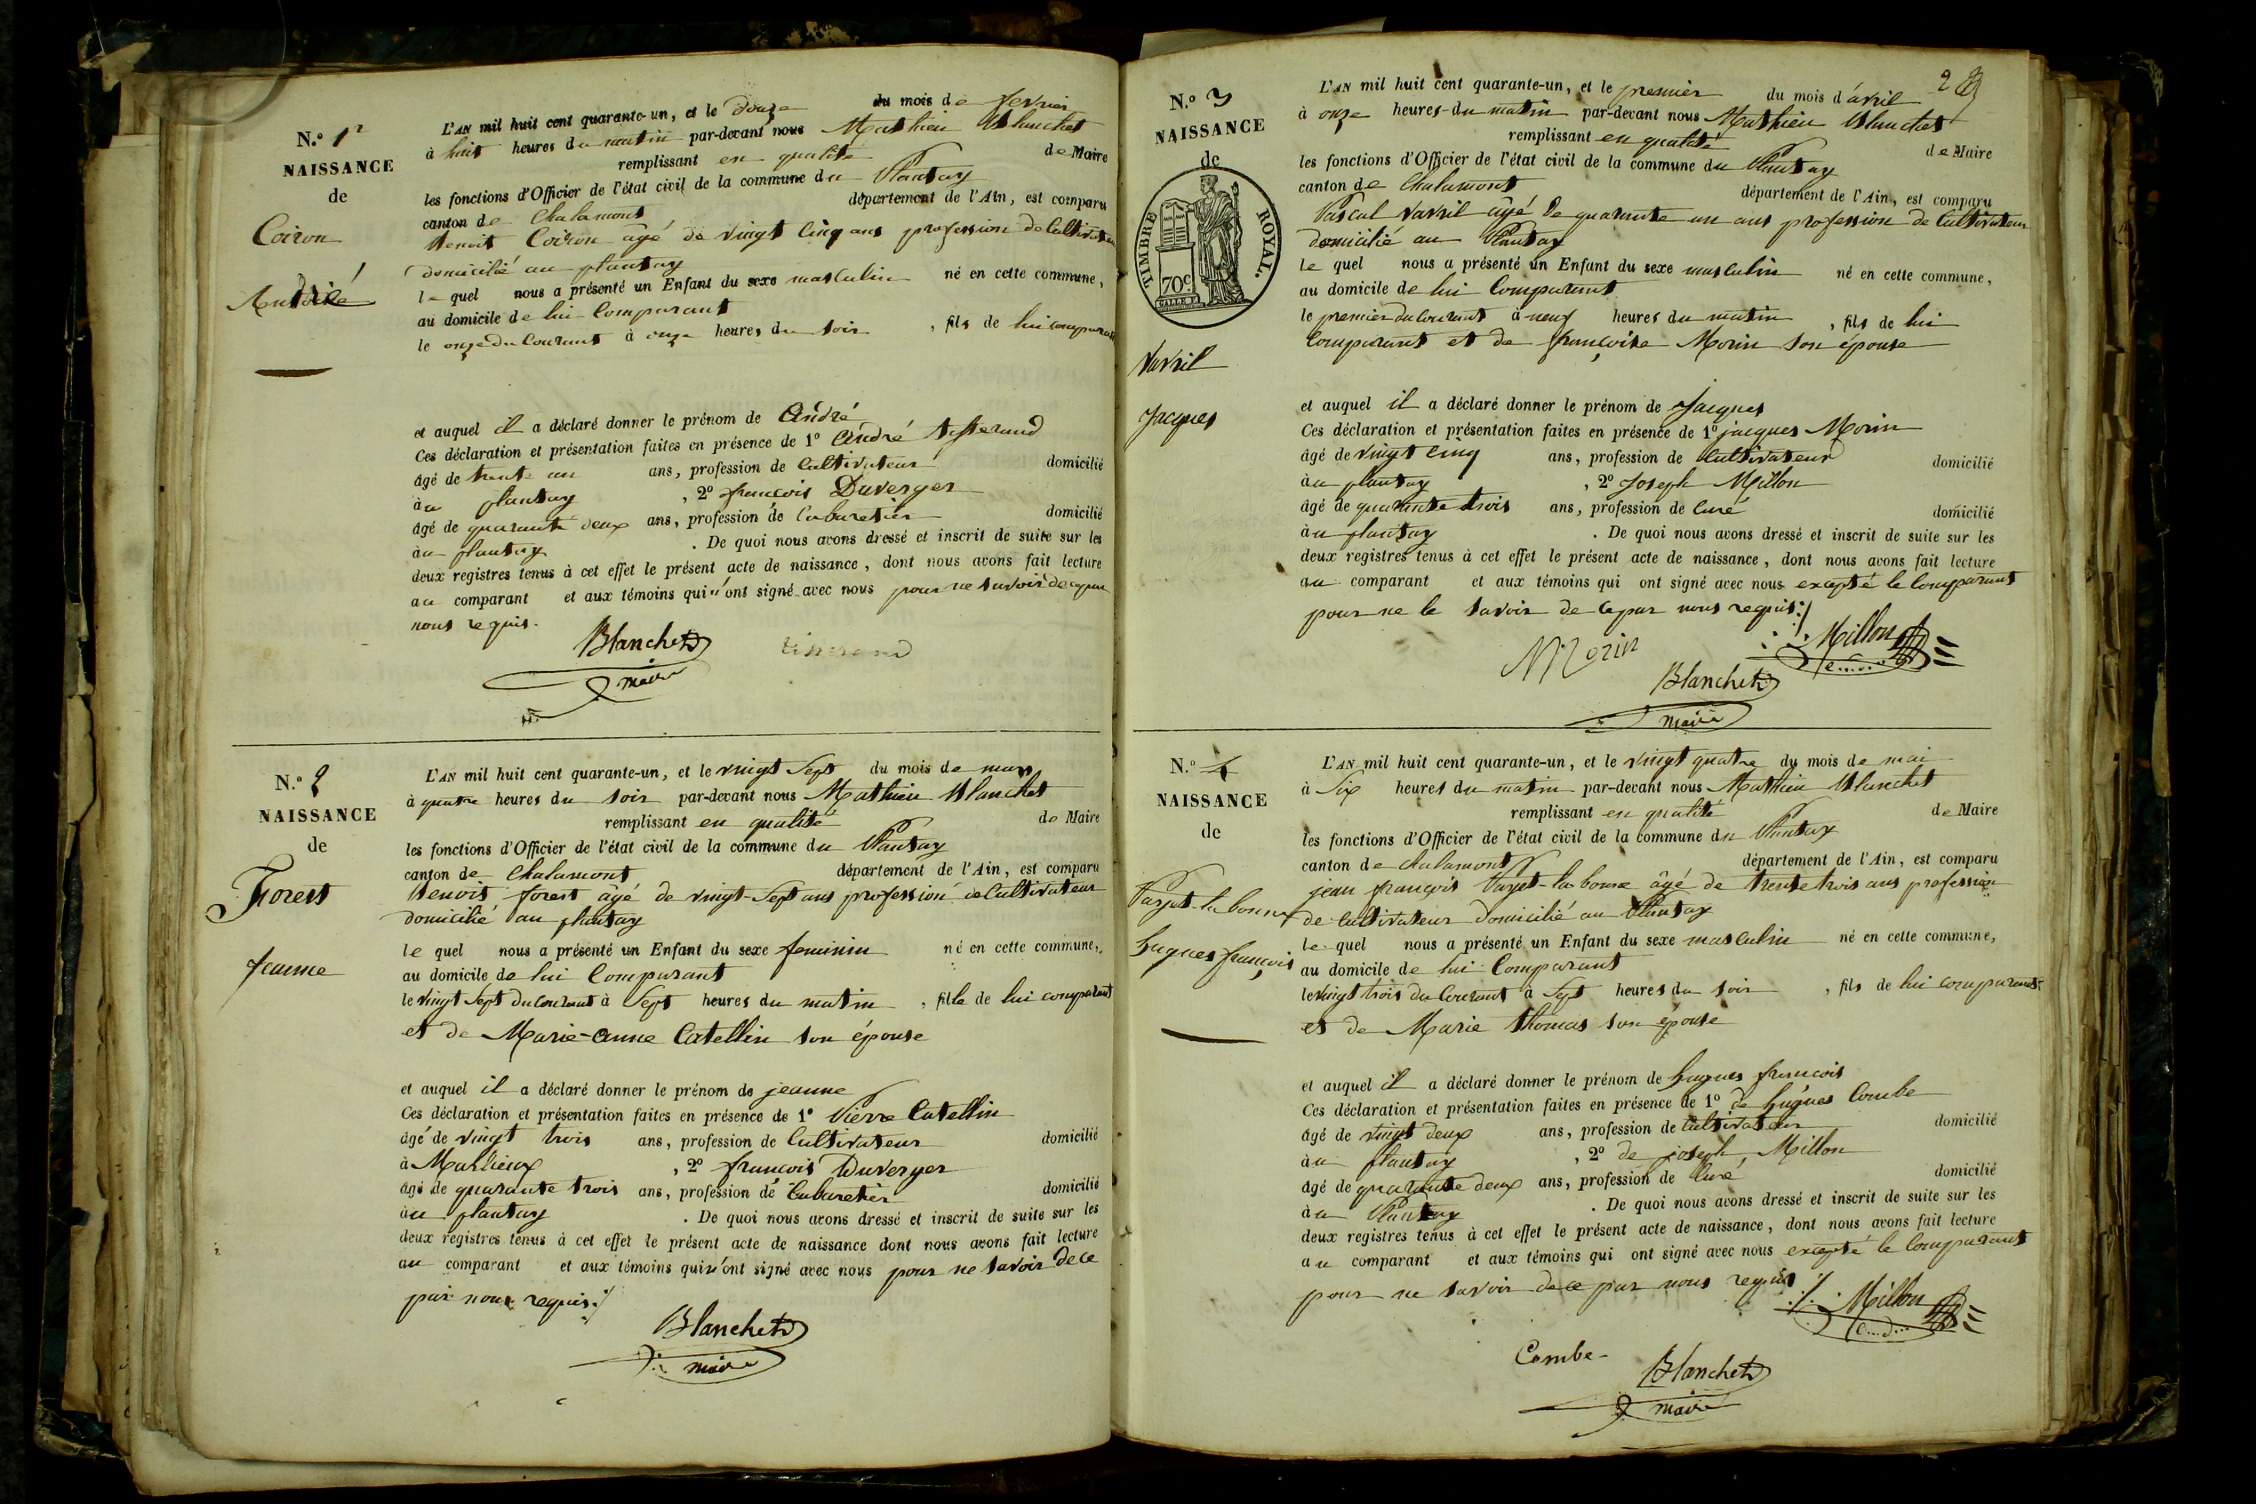 N.o 1r
NAISSANCE
de
Coiron
André
L'AN mil huit cent quarante-un, et le douze du mois de fevrier
à huit heures du matin par-devant nous Mathieu Blanchet
remplissant en qualité de Maire
les fonctions d'Officier de l'état civil de la commune du Plantay
canton de Chalamont département de l'Ain, est comparu
Benoit Coiron âgé de vingt cinq ans profession de Cultivateur
domicilié au plantay
le quel nous a présenté un Enfant du sexe masculin né en cette commune,
au domicile de lui Comparant
le onze du Courant à onze heures du soir, fils de lui comparant
et auquel il a déclaré donner le prénom de André
Ces déclaration et présentation faites en présence de 1o André tisserand
âgé de trente un ans, profession de Cultivateur domicilié
àu plantay, 2o françois Duverger
âgé de quarante deux ans, profession de Cabaretier domicilié
àu plantay. De quoi nous avons dressé et inscrit de suite sur les
deux registres tenus à cet effet le présent acte de naissance, dont nous avons fait lecture
au comparant et aux témoins qui n'ont signé avec nous pour ne savoir de ce par
nous requis.
Blanchet tisserand
maire
N.o 2
NAISSANCE
de
Forest
Jeanne
L'AN mil huit cent quarante-un, et le vingt Sept du mois de mars
à quatre heures du soir par-devant nous Mathieu Blanchet
remplissant en qualité de Maire
les fonctions d'Officier de l'état civil de la commune du Plantay
canton de Chalamont département de l'Ain, est comparu
Benoit forest âgé de vingt-Sept ans profession de Cultivateur
domicilié au plantay
le quel nous a présenté un Enfant du sexe feminin né en cette commune,
au domicile de lui Comparant
le vingt Sept du Courant à Sept heures du matin, fille de lui comparant
et de Marie-anne Catellin son épouse
et auquel il a déclaré donner le prénom de jeanne
Ces déclaration et présentation faites en présence de 1o Pierre Catellin
âgé de vingt trois ans, profession de Cultivateur domicilié
à Marlieux, 2o françois Duverger
âgé de quarante trois ans, profession de Cabaretier domicilié
àu plantay. De quoi nous avons dressé et inscrit de suite sur les
deux registres tenus à cet effet le présent acte de naissance dont nous avons fait lecture
au comparant et aux témoins qui n'ont signé avec nous pour ne savoir de ce
par nous requis./
Blanchet
maire
2
N.o 3
NAISSANCE
de
TIMBRE ROYAL.
70c
Vavril
Jacques
L'AN mil huit cent quarante-un, et le premier du mois d'avril
à onze heures du matin par-devant nous Mathieu Blanchet
remplissant en qualité de Maire
les fonctions d'Officier de l'état civil de la commune du Plantay
canton de Chalamont département de l'Ain, est comparu
Pascal Vavril âgé de quarante un ans profession de Cultivateur
domicilié au Plantay
le quel nous a présenté un Enfant du sexe masculin né en cette commune,
au domicile de lui Comparant
le premier du Courant à neuf heures du matin, fils de lui
Comparant et de françoise Morin son épouse
et auquel il a déclaré donner le prénom de Jacques
Ces déclaration et présentation faites en présence de 1o jacques Morin
âgé de vingt cinq ans, profession de Cultivateur domicilié
àu plantay, 2o Joseph Millon
âgé de quarante trois ans, profession de Curé domicilié
àu plantay. De quoi nous avons dressé et inscrit de suite sur les
deux registres tenus à cet effet le présent acte de naissance, dont nous avons fait lecture
au comparant et aux témoins qui ont signé avec nous excepté le Comparant
pour ne le savoir de ce par nous requis./
Morin Millon
Blanchet
maire
N.o 4
NAISSANCE
de
Payet-la bonne
hugues françois
L'AN mil huit cent quarante-un, et le vingt quatre du mois de mai
à Six heures du matin par-devant nous Mathieu Blanchet
remplissant en qualité de Maire
les fonctions d'Officier de l'état civil de la commune du Plantay
canton de Chalamont département de l'Ain, est comparu
jean françois Payet-la bonne âgé de trente trois ans profession
de Cultivateur domicilié au Plantay
le quel nous a présenté un Enfant du sexe masculin né en cette commune,
au domicile de lui Comparant
le vingt trois du Courant à Sept heures du soir, fils de lui comparant
et de Marie thomas son épouse
et auquel il a déclaré donner le prénom de hugues francois
Ces déclaration et présentation faites en présence de 1o de hugues Combe
âgé de vingt deux ans, profession de Cultivateur domicilié
àu plantay, 2o de joseph Millon
âgé de quarante deux ans, profession de Curé domicilié
àu Plantay. De quoi nous avons dressé et inscrit de suite sur les
deux registres tenus à cet effet le présent acte de naissance, dont nous avons fait lecture
au comparant et aux témoins qui ont signé avec nous excepté le Comparant
pour ne savoir de ce par nous requis ./.
Millon
Combe Blanchet
maire